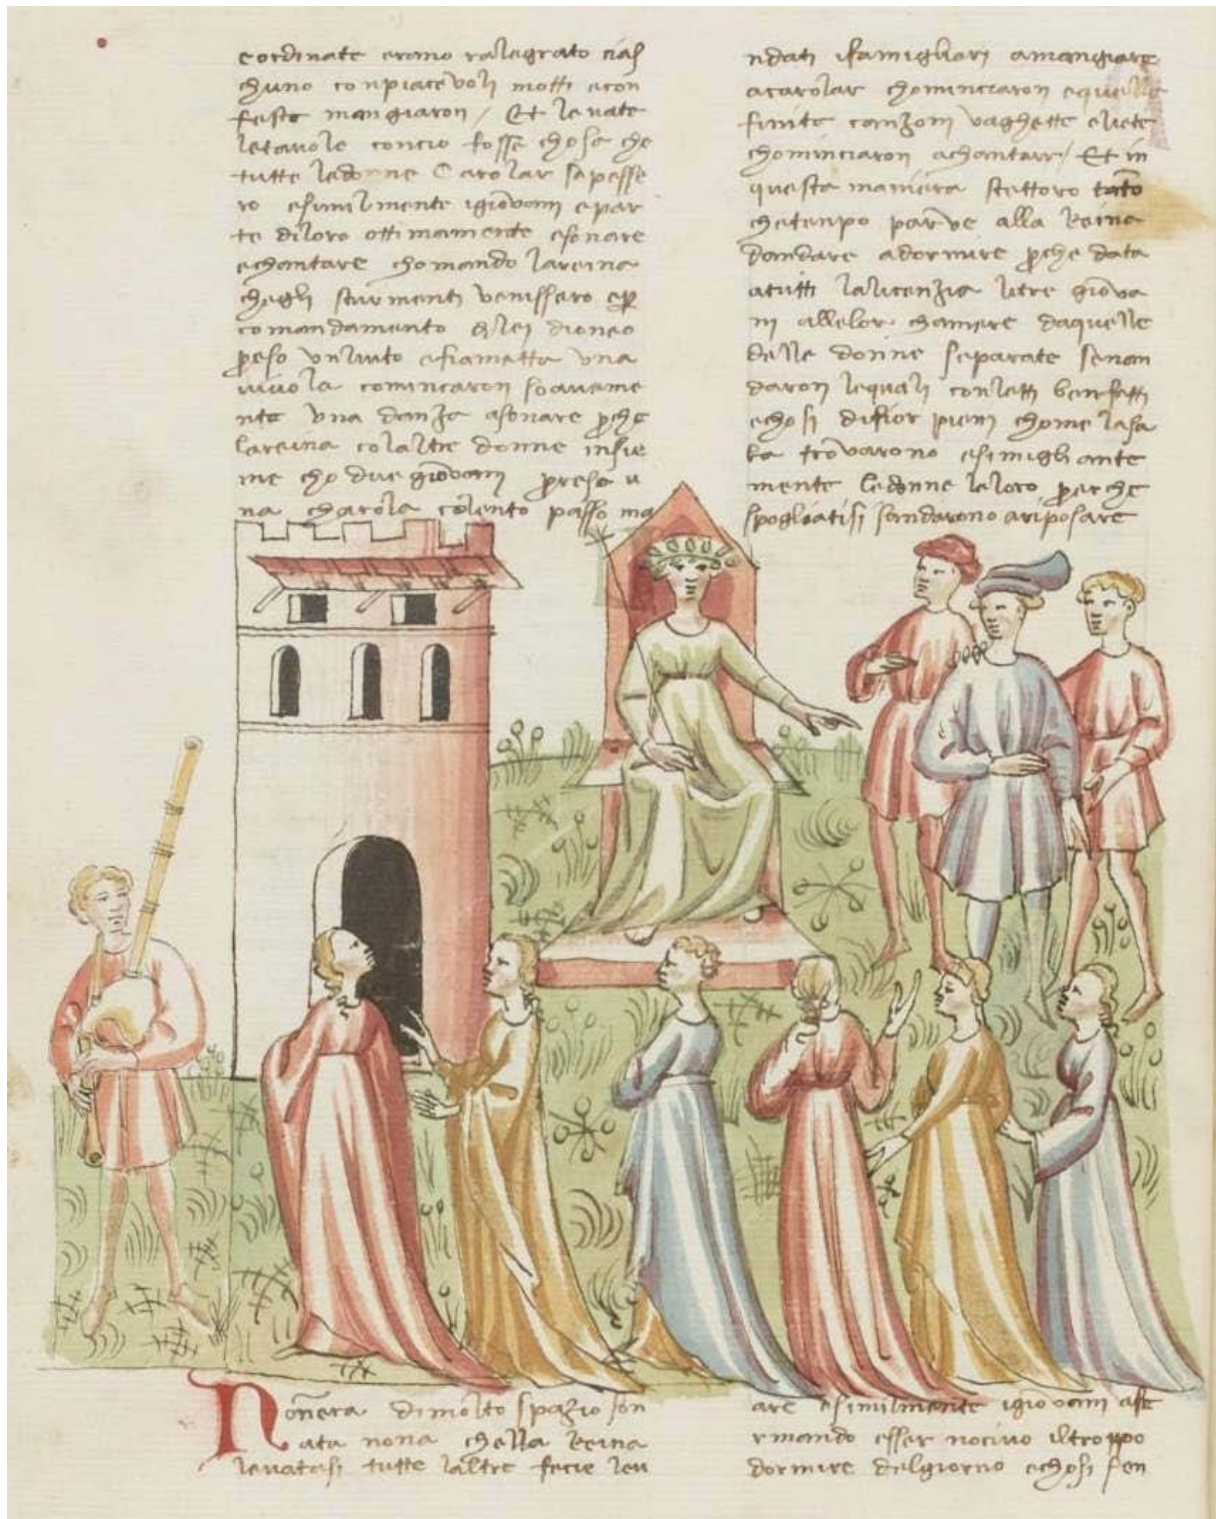 eordinate erano ralegrato cias
chuno conpiacevoli motti econ
festa mangiaron / Et levate
letavole concio fosse chosa che
tutte ledonne Carolar sapesse
ro esimilmente igiovani epar
te diloro ottimamente esonare
echantare chomando lareina
chegli sturmenti venissero e per
comandamento di lei dioneo
preso unliuto efiametta una
vivola comincaron soaveme
nte una danza asonare perche
lareina colaltre donne insie
me cho due giovani presa u
na charola colento passo ma
ndati ifamigliari amangiare
acarolar chominciaron equella
finita canzoni vaghette eliete
chominciaron achantare / Et in
questa maniera stettoro tanto
chetenpo parve alla Reina
dandare adormire perche data
atutti lalicenzia litre giova
ni allelor chamere daquelle
delle donne separate senan
daron lequali conletti benfatti
echosi difior pieni chome lasa
la trovarono esimigliante
mente ledonne leloro perche
spogliatisi sandarono ariposare
Nonera dimolto spazio son
ata nona chella Reina
levatasi tutte laltre fecie lev
are esimilmente igiovani affe
rmando esser nocivo iltroppo
dormire delgiorno echosi sen